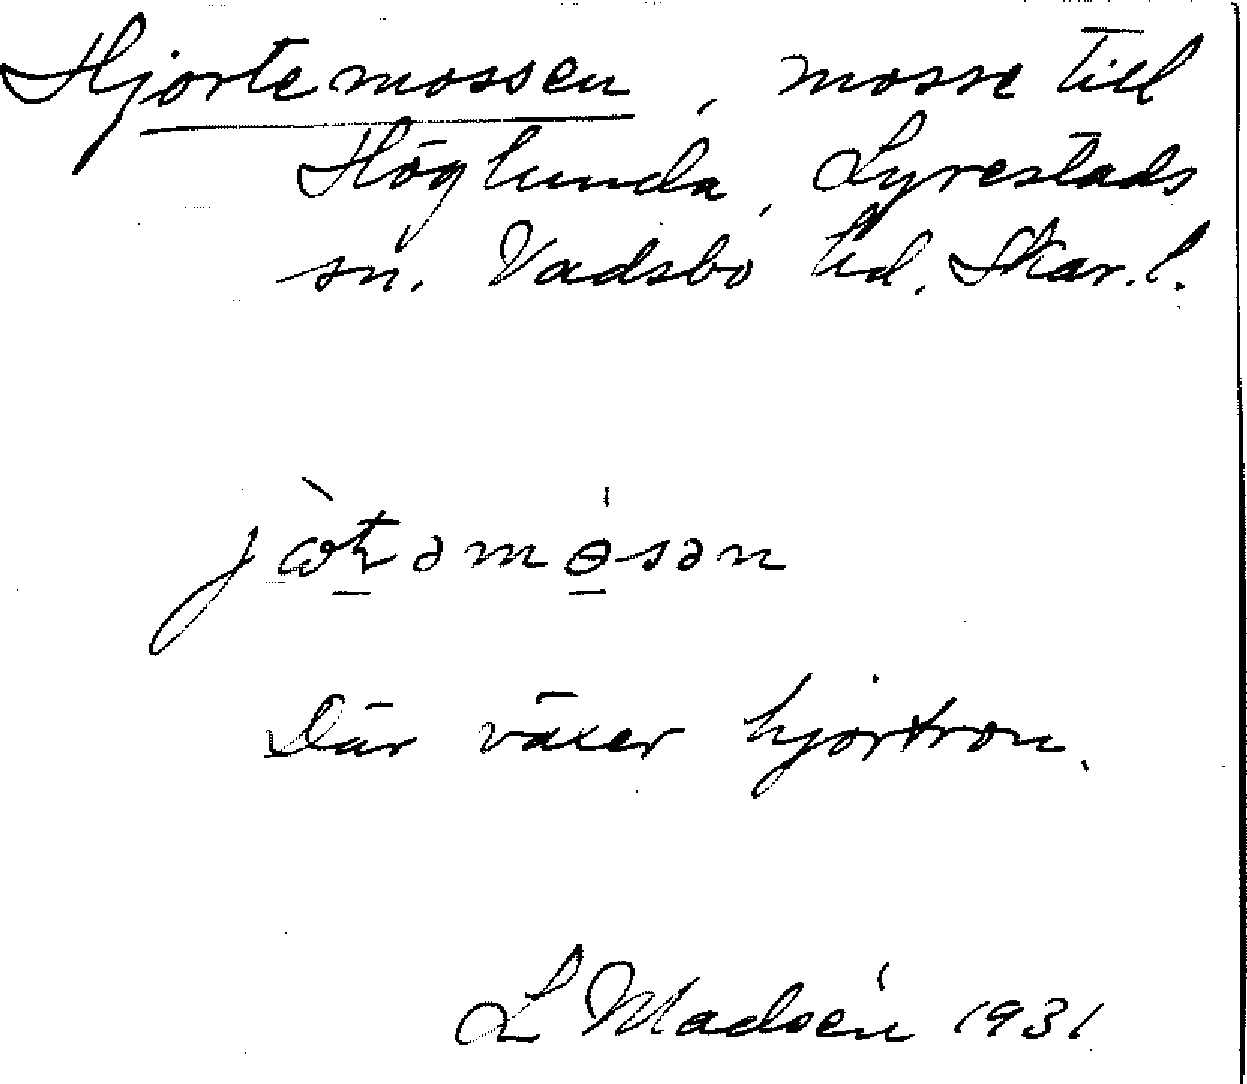 Hjortemossen, mosse till
Höglunda, Lyrestads
sn. Vadsbo hd. Skar.l.
Där växer hjortron.
L Madsén 1931